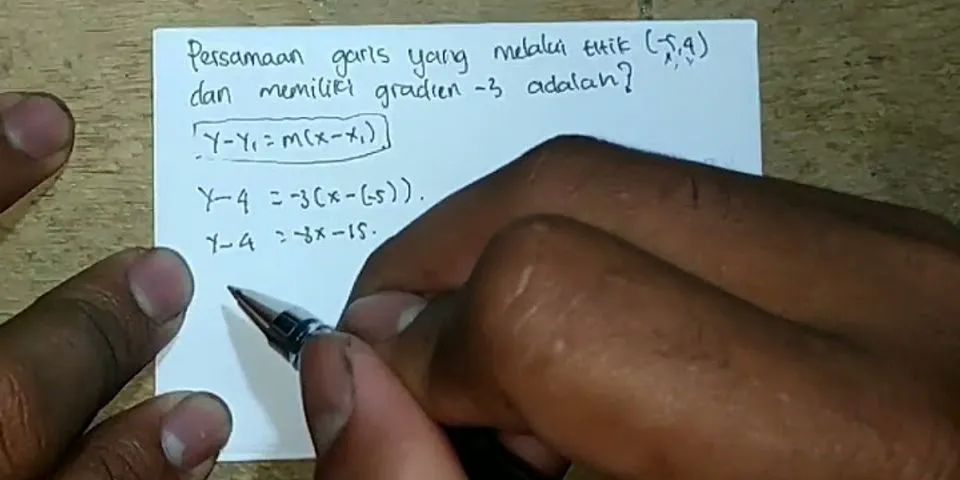 Persamaan garis yang melalui titik (-5,4)
x₁ y₁
dan memiliki gradien -3 adalah?
y-y₁ = m(x-x₁)
y-4 = -3(x-(-5)).
y-4 = -3x-15.